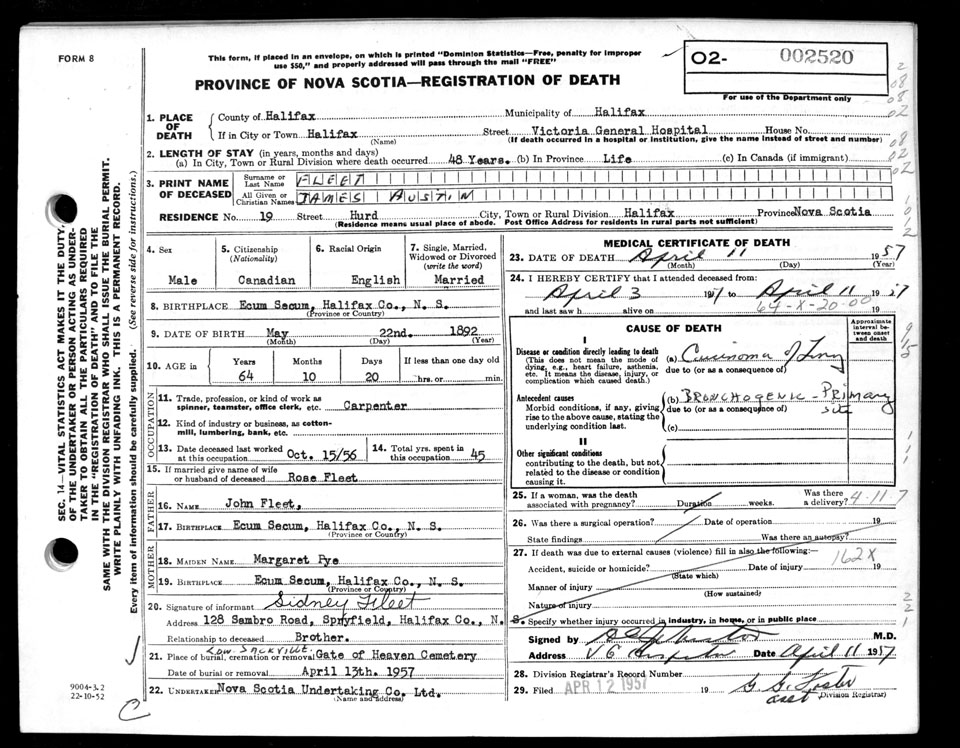 FORM 8
This form, if placed in an envelope, on which is printed "Dominion Statistics—Free, penalty for improper
use $50," and properly addressed will pass through the mail "FREE"
PROVINCE OF NOVA SCOTIA—REGISTRATION OF DEATH
O2- 002520
For use of the Department only
1. PLACE OF DEATH
County of Halifax Municipality of Halifax
If in City or Town Halifax Street Victoria General Hospital House No.
(Name) (If death occurred in a hospital or institution, give the name instead of street and number)
2. LENGTH OF STAY (in years, months and days)
(a) In City, Town or Rural Division where death occurred 48 Years. (b) In Province Life (c) In Canada (if immigrant)
3. PRINT NAME OF DECEASED
Surname or Last Name FLEET
All Given or Christian Names JAMES AUSTIN
RESIDENCE No. 19 Street Hurd City, Town or Rural Division Halifax Province Nova Scotia
(Residence means usual place of abode. Post Office Address for residents in rural parts not sufficient)
4. Sex
Male
5. Citizenship (Nationality)
Canadian
6. Racial Origin
English
7. Single, Married, Widowed or Divorced (write the word)
Married
8. BIRTHPLACE Ecum Secum, Halifax Co., N. S.
(Province or Country)
9. DATE OF BIRTH May 22nd. 1892
(Month) (Day) (Year)
10. AGE in Years Months Days If less than one day old
64 10 20 hrs. or min.
OCCUPATION
11. Trade, profession, or kind of work as
spinner, teamster, office clerk, etc. Carpenter
12. Kind of industry or business, as cotton-
mill, lumbering, bank, etc.
13. Date deceased last worked
at this occupation Oct. 15/56
14. Total yrs. spent in
this occupation 45
15. If married give name of wife
or husband of deceased Rose Fleet
FATHER
16. NAME John Fleet,
17. BIRTHPLACE Ecum Secum, Halifax Co., N. S.
(Province or Country)
MOTHER
18. MAIDEN NAME Margaret Pye
19. BIRTHPLACE Ecum Secum, Halifax Co., N. S.
(Province or Country)
20. Signature of informant Sidney Fleet
Address 128 Sambro Road, Spryfield, Halifax Co., N. S.
Relationship to deceased Brother.
Low. SACKVILLE.
21. Place of burial, cremation or removal Gate of Heaven Cemetery
Date of burial or removal April 13th. 1957
22. UNDERTAKER Nova Scotia Undertaking Co. Ltd.
(Name and address)
MEDICAL CERTIFICATE OF DEATH
23. DATE OF DEATH April 11 1957
(Month) (Day) (Year)
24. I HEREBY CERTIFY that I attended deceased from:
April 3 1957 to April 11 1957
and last saw h alive on 19
64-X-20-00
CAUSE OF DEATH
Approximate interval between onset and death
I
Disease or condition directly leading to death
(This does not mean the mode of
dying, e.g., heart failure, asthenia,
etc. It means the disease, injury, or
complication which caused death.)
(a) Carcinoma of Lung
due to (or as a consequence of)
Antecedent causes
Morbid conditions, if any, giving
rise to the above cause, stating the
underlying condition last.
(b) BRONCHOGENIC - PRIMARY
site
due to (or as a consequence of)
(c)
II
Other significant conditions
contributing to the death, but not
related to the disease or condition
causing it.
25. If a woman, was the death
associated with pregnancy? Duration weeks. Was there
a delivery?
4-11-7
26. Was there a surgical operation? Date of operation 19
State findings Was there an autopsy?
27. If death was due to external causes (violence) fill in also the following:
162X
Accident, suicide or homicide? Date of injury 19
(State which)
Manner of injury
(How sustained)
Nature of injury
Specify whether injury occurred in industry, in home, or in public place
Signed by M.D.
Address V G Hospital Date April 11 1957
28. Division Registrar's Record Number
29. Filed APR 12 1957 19 Foster
asst (Division Registrar)
SEC. 14—VITAL STATISTICS ACT MAKES IT THE DUTY
OF THE UNDERTAKER OR PERSON ACTING AS UNDER-
TAKER TO OBTAIN ALL THE PARTICULARS REQUIRED
IN THE "REGISTRATION OF DEATH" AND TO FILE THE
SAME WITH THE DIVISION REGISTRAR WHO SHALL ISSUE THE BURIAL PERMIT.
WRITE PLAINLY WITH UNFADING INK. THIS IS A PERMANENT RECORD.
Every item of information should be carefully supplied. (See reverse side for instructions.)
9004-3.2
22-10-52